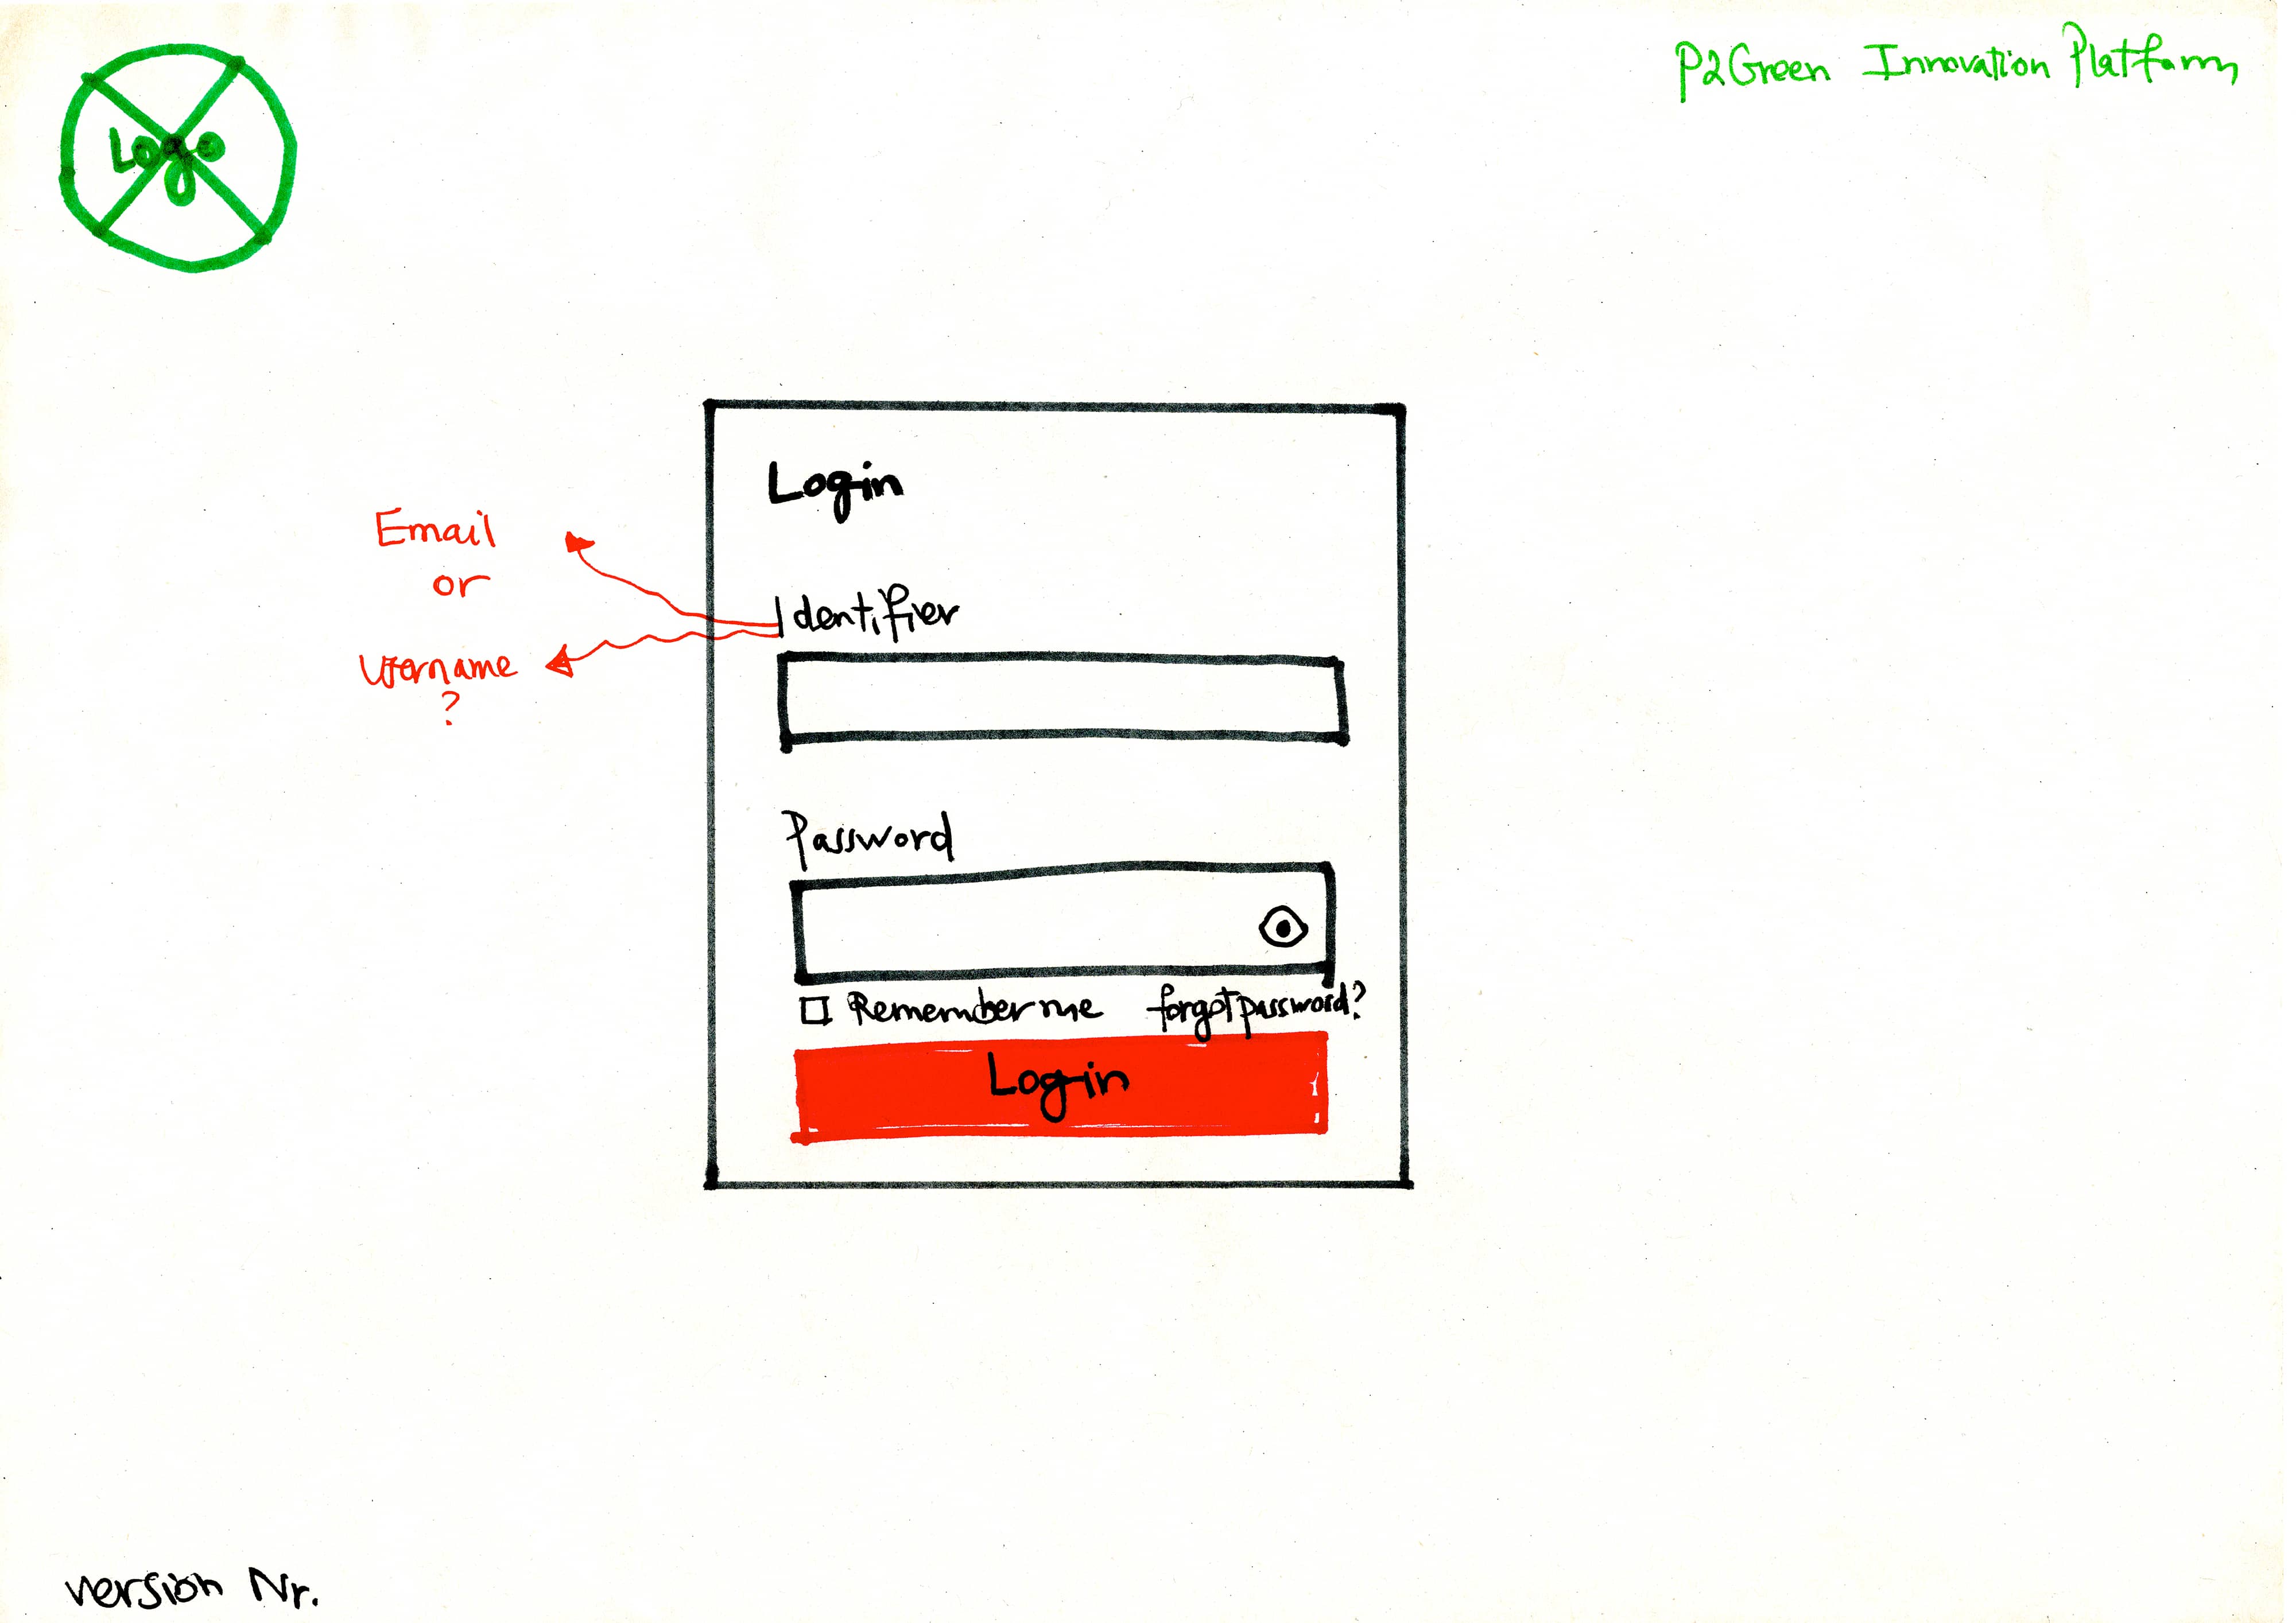 Logo
P2Green Innovation Platform
Login
Email
or
Username
?
Identifier
Password
Remember me
forgot password?
Login
version Nr.